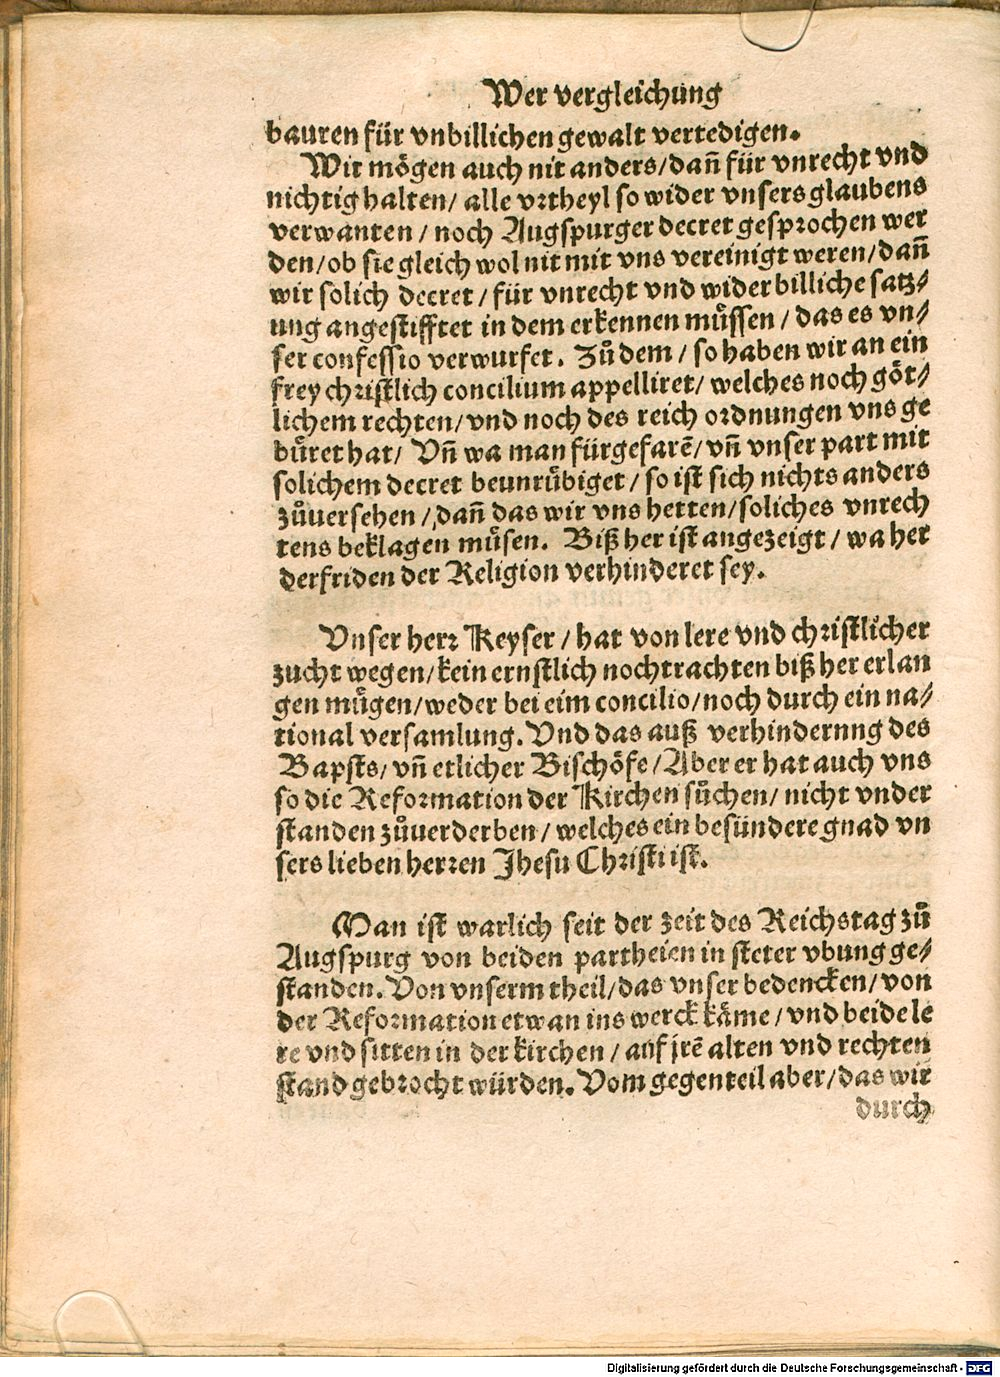 Wer vergleichung
bauren für vnbillichen gewalt vertedigen.
Wir mögen auch nit anders/dañ für vnrecht vnd
nichtig halten/ alle vrtheyl so wider vnsers glaubens
verwanten / noch Augspurger decret gesprochen wer
den/ob sie gleich wol nit mit vns vereinigt weren/dañ
wir solich decret / für vnrecht vnd wider billiche satz/
ung angestifftet in dem erkennen muͤssen / das es vn/
ser confessio verwurfet. Zuͦ dem / so haben wir an ein
frey christlich concilium appelliret/ welches noch göt/
lichem rechten/vnd noch des reich ordnungen vns ge
buͤret hat/ Vñ wa man fürgefarẽ/vñ vnser part mit
solichem decret beunruͤbiget / so ist sich nichts anders
zuͦuersehen / dañ das wir vns hetten/soliches vnrech
tens beklagen muͤsen. Biß her ist angezeigt / wa her
derfriden der Religion verhinderet sey.
Vnser herr Keyser / hat von lere vnd christlicher
zucht wegen/kein ernstlich nochtrachten biß her erlan
gen muͤgen/weder bei eim concilio/noch durch ein na/
tional versamlung. Vnd das auß verhindernng des
Bapsts/ vñ etlicher Bischöfe / Aber er hat auch vns
so die Reformation der Kirchen suͦchen/ nicht vnder
standen zuͦuerderben / welches ein besündere gnad vn
sers lieben herren Jhesu Christi ist.
Man ist warlich seit der zeit des Reichstag zuͦ
Augspurg von beiden partheien in steter vbung ge/
standen. Von vnserm theil/das vnser bedencken/von
der Reformation etwan ins werck käme / vnd beide le
re vnd sitten in der kirchen / auf jrẽ alten vnd rechten
stand gebrocht würden. Vom gegenteil aber/das wir
durch
Digitalisierung gefördert durch die Deutsche Forschungsgemeinschaft - DFG